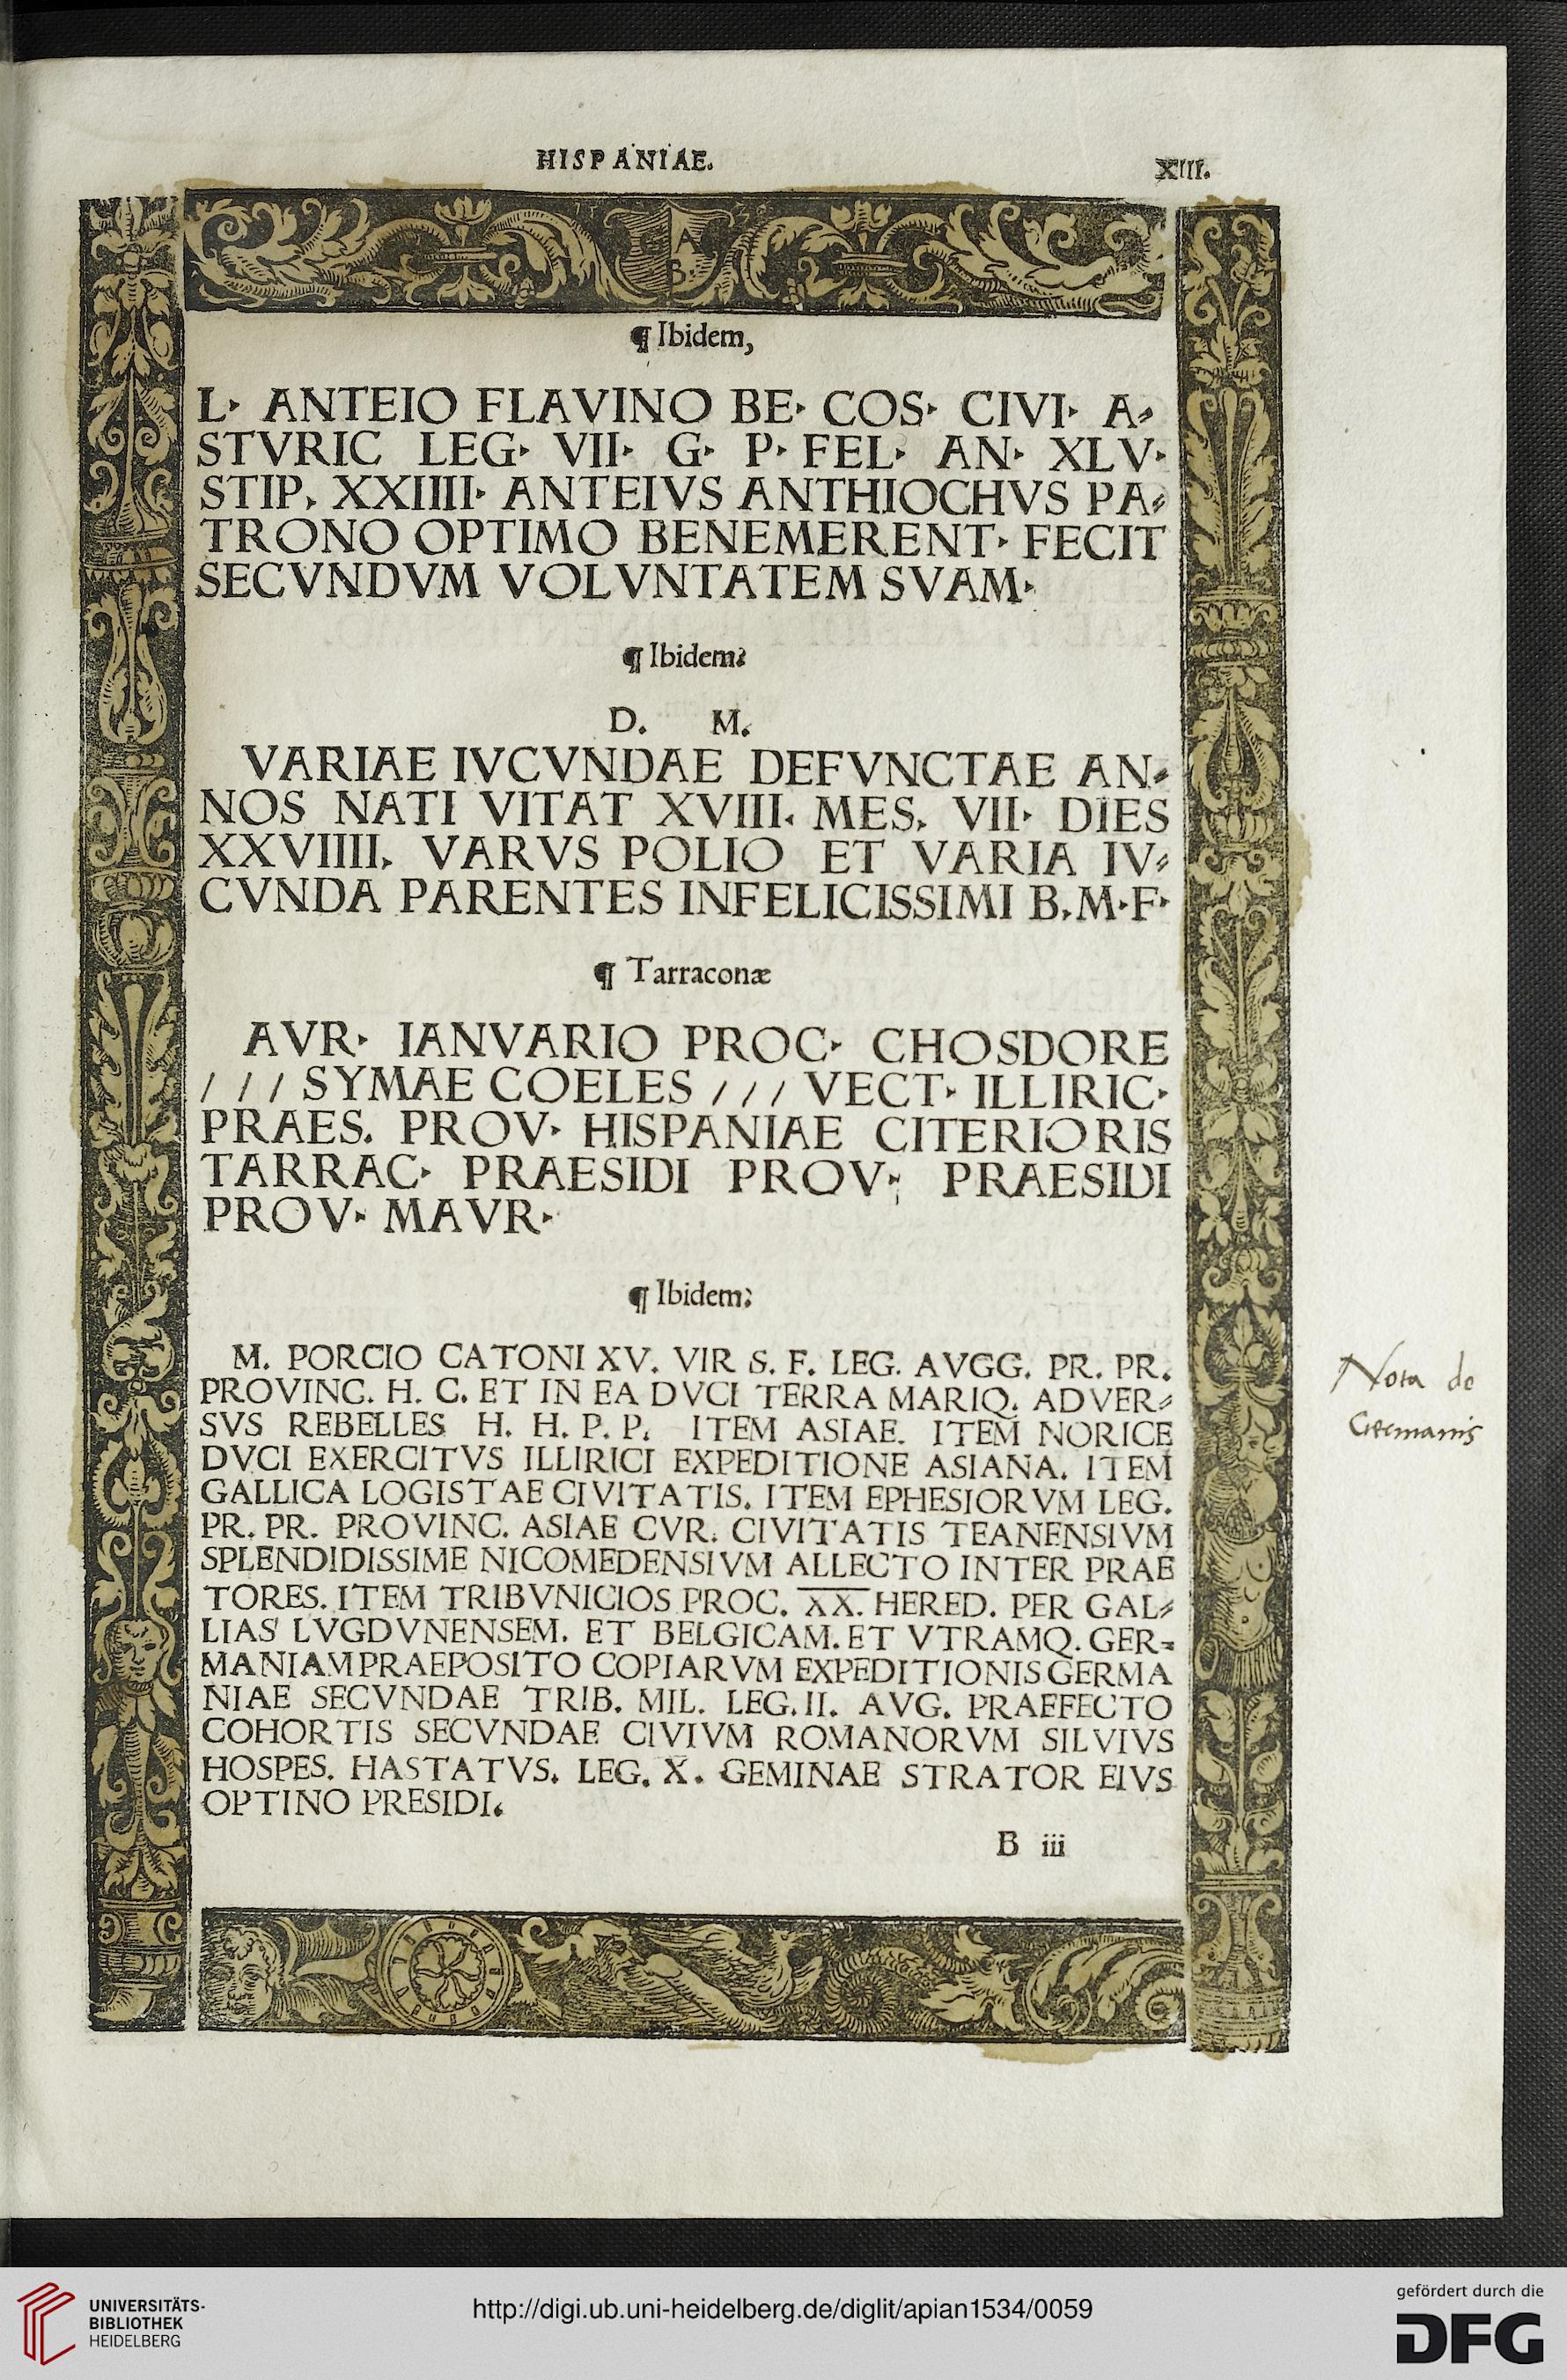 HISPANIAE.
XIII.
A
B
¶ Ibidem,
L· ANTEIO FLAVINO BE· COS· CIVI· A⸗
STVRIC LEG· VII· G· P· FEL· AN· XLV·
STIP. XXIIII· ANTEIVS ANTHIOCHVS PA⸗
TRONO OPTIMO BENEMERENT· FECIT
SECVNDVM VOLVNTATEM SVAM·
¶ Ibidem:
D. M.
VARIAE IVCVNDAE DEFVNCTAE AN⸗
NOS NATI VITAT XVIII. MES. VII· DIES
XXVIIII. VARVS POLIO ET VARIA IV⸗
CVNDA PARENTES INFELICISSIMI B.M·F·
¶ Tarraconæ
AVR· IANVARIO PROC· CHOSDORE
/ / / SYMAE COELES / / / VECT· ILLIRIC·
PRAES. PROV· HISPANIAE CITERIORIS
TARRAC· PRAESIDI PROV· PRAESIDI
PROV· MAVR·
¶ Ibidem:
M. PORCIO CATONI XV. VIR S. F. LEG. AVGG. PR. PR.
PROVINC. H. C. ET IN EA DVCI TERRA MARIQ. ADVER⸗
SVS REBELLES H. H. P. P. ITEM ASIAE. ITEM NORICE
DVCI EXERCITVS ILLIRICI EXPEDITIONE ASIANA. ITEM
GALLICA LOGISTAE CIVITATIS. ITEM EPHESIORVM LEG.
PR. PR. PROVINC. ASIAE CVR. CIVITATIS TEANENSIVM
SPLENDIDISSIME NICOMEDENSIVM ALLECTO INTER PRAE
TORES. ITEM TRIBVNICIOS PROC. X̅X̅. HERED. PER GAL⸗
LIAS LVGDVNENSEM. ET BELGICAM. ET VTRAMQ. GER⸗
MANIAM PRAEPOSITO COPIARVM EXPEDITIONIS GERMA
NIAE SECVNDAE TRIB. MIL. LEG. II. AVG. PRAEFECTO
COHORTIS SECVNDAE CIVIVM ROMANORVM SILVIVS
HOSPES. HASTATVS. LEG. X. GEMINAE STRATOR EIVS
OPTINO PRESIDI.
B iii
Nota de
Germanis
UNIVERSITÄTS-
BIBLIOTHEK
HEIDELBERG
http://digi.ub.uni-heidelberg.de/diglit/apian1534/0059
gefördert durch die
DFG